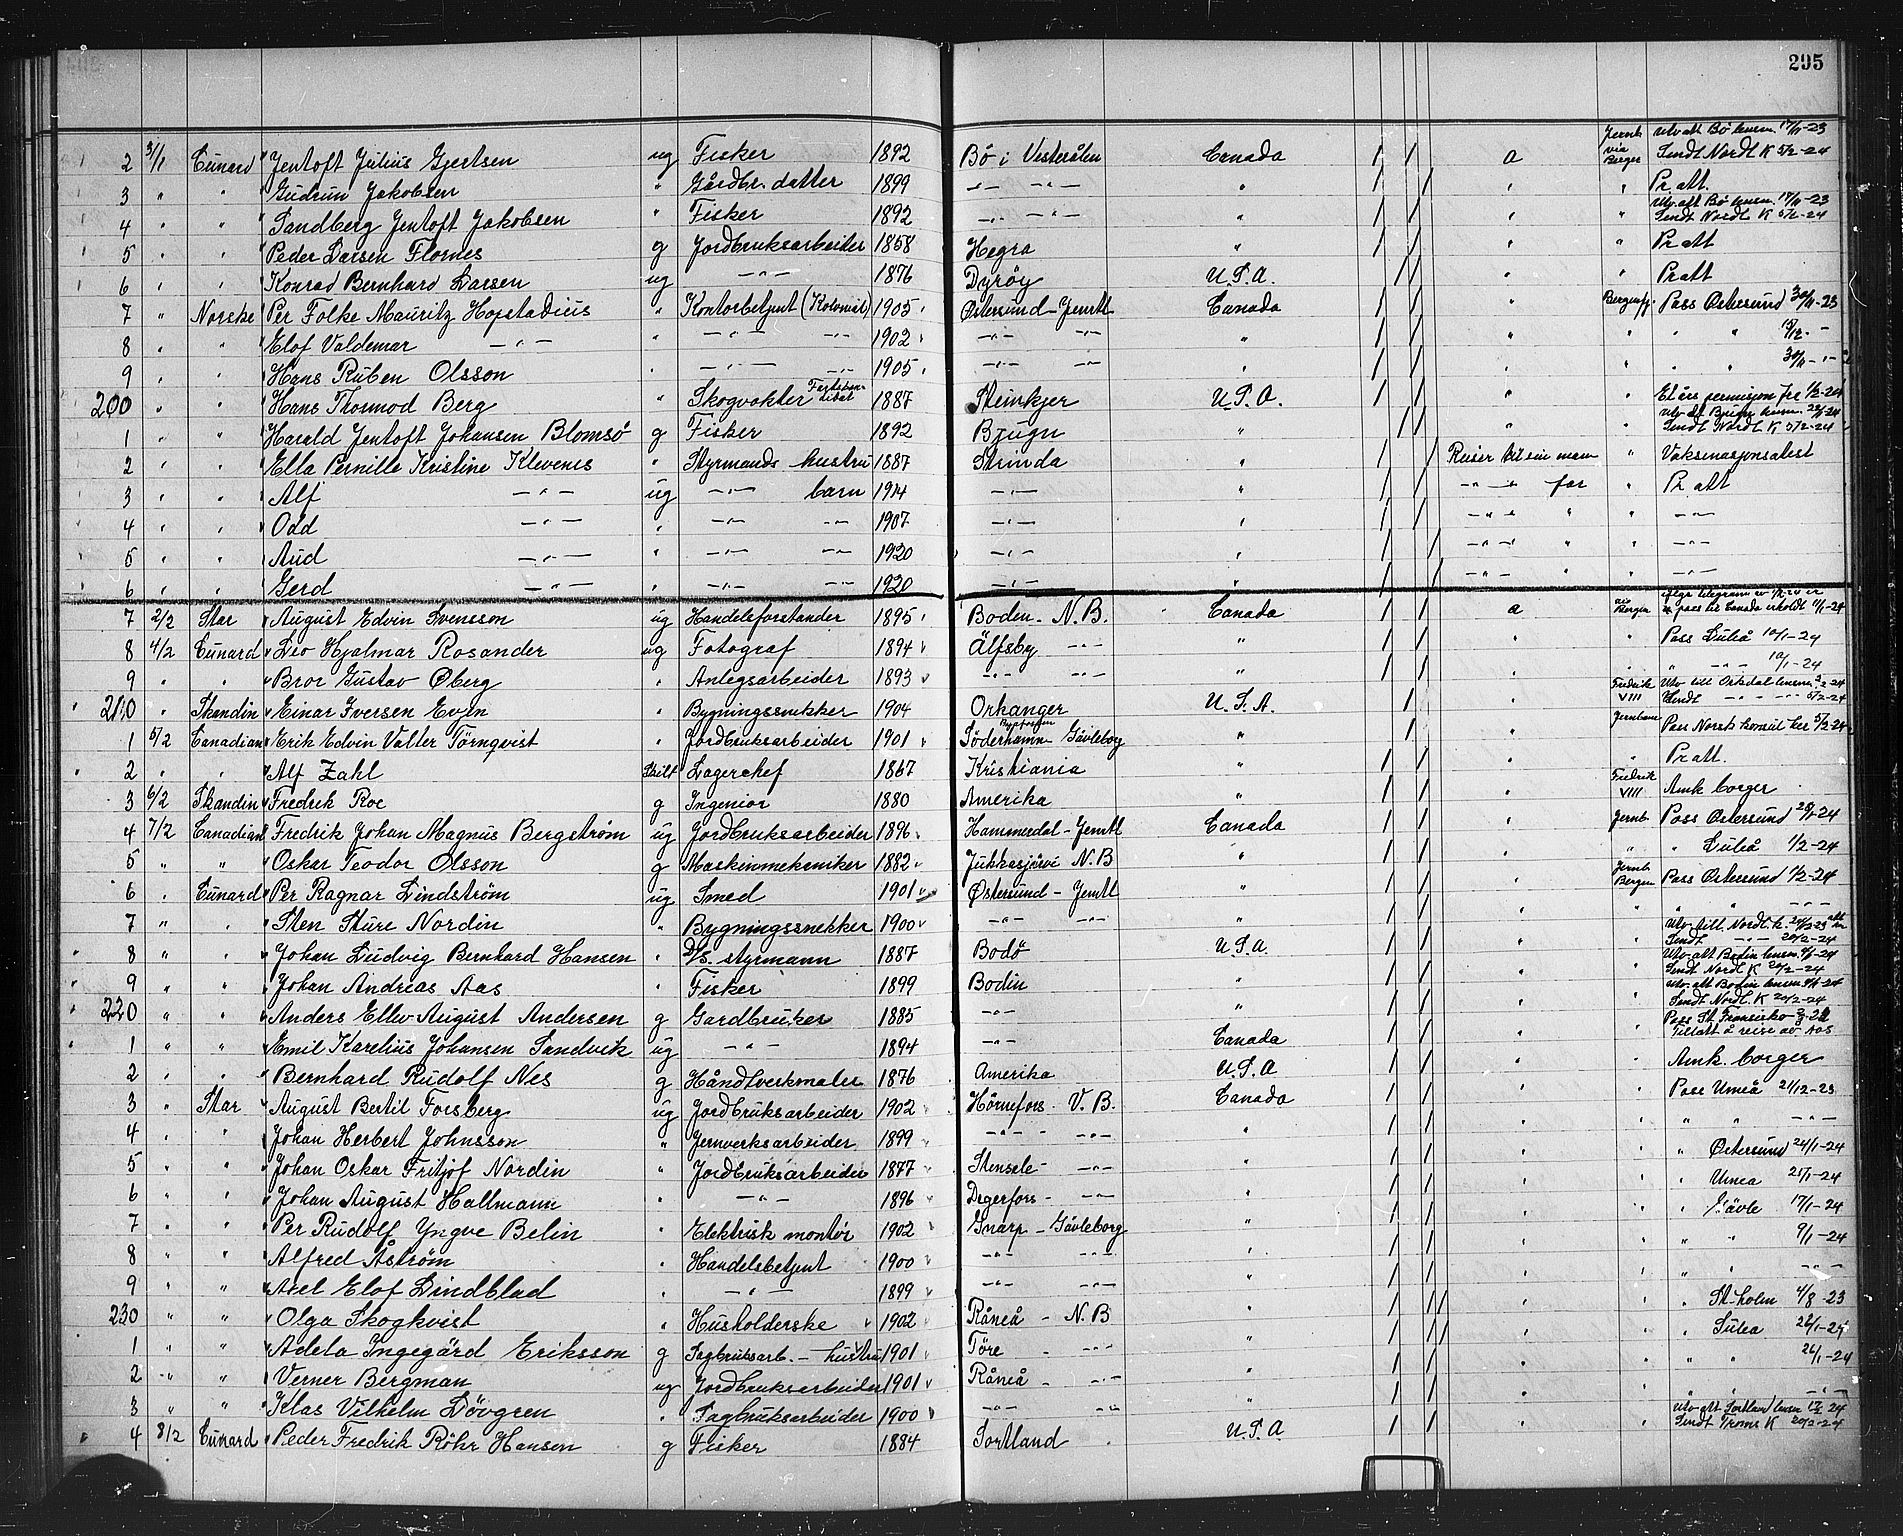 295
2 31/1 Cunard Jentoft Julius Gjertsen ug Fisker 1892 Bö i Vesterålen Canada / / a Jernb via Bergen Utv. att Bö lensm. 17/11-23 Sendt Nordl. K 5/2-24
3 " " Gudrun Jakobsen " Gårdbr. datter 1899 -"- -"- " / / " " Pr. att.
4 " " Sandberg Jentoft Jakobsen " Fisker 1892 -"- -"- " / / " " Utv. att Bö lensm. 17/11-23 Sendt Nordl. K 5/2-24
5 " " Peder Larsen Flornes g Jordbruksarbeider 1858 Hegra " / / " " Pr att
6 " " Konrad Bernhard Larsen ug -"- 1876 Dyröy U.S.A. / / " " Pr att
7 " Norske Per Folke Mauritz Hopstadius " Kontorbetjent (Kolonial) 1905 Östersund - Jemtl Canada / / " Bergensfj. Pass Östersund 30/11-23
8 " " Elof Valdemar -"- " -"- -"- 1902 -"- -"- " / / " " " " 13/12 -"-
9 " " Hans Ruben Olsson " -"- -"- 1905 -"- -"- " / / " " " " 30/11 -"-
200 " " Hans Thormod Berg " Skogvokter 1887 Steinkjer U.S.A. / / " " Et års permisjon fra 1/2-24
1 " " Harald Jentoft Johansen Blomsö g Fisker 1892 Bjugn " / / " " Utv. att Bjugn lensm. Sendt Nordl. K 5/2-24
2 " " Ella Pernille Kristine Klevenes " Styrmands hustru 1887 Strinda " / / Reiser til sin mann " Vaksinasjonsatest
3 " " Alf -"- ug -"- barn 1914 -"- " / / -"- far " Pr att
4 " " Odd -"- " -"- -"- 1907 -"- " / / -"- " " -"-
5 " " Aud -"- " -"- -"- 1920 -"- " / / -"- " " -"-
6 " " Gerd -"- " -"- -"- 1920 -"- " / / -"- " " -"-
7 2/2 Star August Edvin Svensson ug Handelsforstander 1895 Boden - N.B. Canada / / a via Bergen pass til Canada erholdt
8 4/2 Cunard Leo Hjalmar Rosander ug Fotograf 1894 Älfsby -"- " / / " " Pass Luleå 10/1-24
9 " " Bror Gustav Öberg " Anlegsarbeider 1893 -"- -"- " / / " " " -"- 10/1-24
210 " Skandin Einar Iversen Evjen " Bygningssnekker 1904 Orkanger U.S.A. / " Fredrik VIII Utv. till Orkdal lensm. Sendt -"- 5/2-24
1 5/2 Canadian Erik Edvin Valter Törnqvist " Jordbruksarbeider 1901 Söderhamn Gävleborg " / " Jernbane Pass Norsk konsul her 5/2-24
2 " " Alf Zahl Skilt Lagerchef 1867 Kristiania " / / " " Pr att.
3 6/2 Skandin Fredrik Roe g Ingeniør 1880 Amerika " / / " Fredrik VIII Amk borger
4 7/2 Canadian Fredrik Johan Magnus Bergström ug Jordbruksarbeider 1896 Hammerdal - Jemtl Canada / / " Jernb Pass Östersund 28/1-24
5 " " Oskar Teodor Olsson g Maskinmekaniker 1882 Jukkasjärvi N.B " / / " " " Luleå 1/2-24
6 " Cunard Per Ragnar Lindström ug Smed 1901 Östersund - Jemtl " / / " Jernb Bergen Pass Östersund 1/2-24
7 " " Sten Sture Nordin " Bygningssnekker 1900 -"- -"- " / / " " " " -"-
8 " " Johan Ludvig Bernhard Hansen " D/S. styrmann 1887 Bodö U.S.A. / / " " Utv. till. Nordl. K. Sendt -"- 20/2-24
9 " " Johan Andreas Aas " Fisker 1899 Bodin " / / " " Utv. att Bodin lensm. Sendt Nordl K 20/2-24
220 " " Anders Ellev August Andersen g Gardbruker 1885 -"- " / / " " Utv. att Bodin lensm. Sendt Nordl. K 20/2-24
1 " " Emil Karelius Johansen Sandvik ug -"- 1894 -"- Canada / / " " Pass St. Fransisko Tillatt å reise av Aos
2 " " Bernhard Rudolf Nes g Håndtverkmaler 1876 Amerika U.S.A / / " " Amk. borger
3 " Star August Bertil Forsberg ug Jordbruksarbeider 1902 Hörnefors - V.B. Canada / / " " Pass Umeå 21/12-23
4 " " Johan Herbert Johnsson " Jernverksarbeider 1899 -"- -"- " / / " " " " -"-
5 " " Johan Oskar Fritjof Nordin " Jordbruksarbeider 1877 Stensele - -"- " / / " " " Östersund 24/1-24
6 " " Johan August Hallmann " -"- 1896 Degerfors - -"- " / / " " " Umea 25/1-24
7 " " Per Rudolf Yngve Belin " Elektrisk montör 1902 Gnarp - Gävleborg " / / " " " Gävle 17/1-24
8 " " Alfred Åström " Handelsbetjent 1900 -"- -"- " / / " " " " 9/1-24
9 " " Axel Elof Lindblad " -"- 1899 -"- -"- " / / " " " " -"-
230 " " Olga Skogkvist " Husholderske 1902 Råneå - N.B " / / " " " St-holm 4/8-23
1 " " Adela Ingegärd Eriksson g Sagbruksarb. - hustru 1901 Töre - -"- " / / " " " Lulea 26/1-24
2 " " Verner Bergman ug Jordbruksarbeider 1901 Råneå - -"- " / / " " " " 26/1-24
3 " " Klas Vilhelm Lövgren " Sagbruksarbeider 1900 -"- -"- " / / " " " " -"-
4 8/2 Cunard Peder Fredrik Röhr Hansen g Fisker 1884 Sortland U.S.A / / " " Utv. att Sortland lensm Sendt Troms K 20/2-24